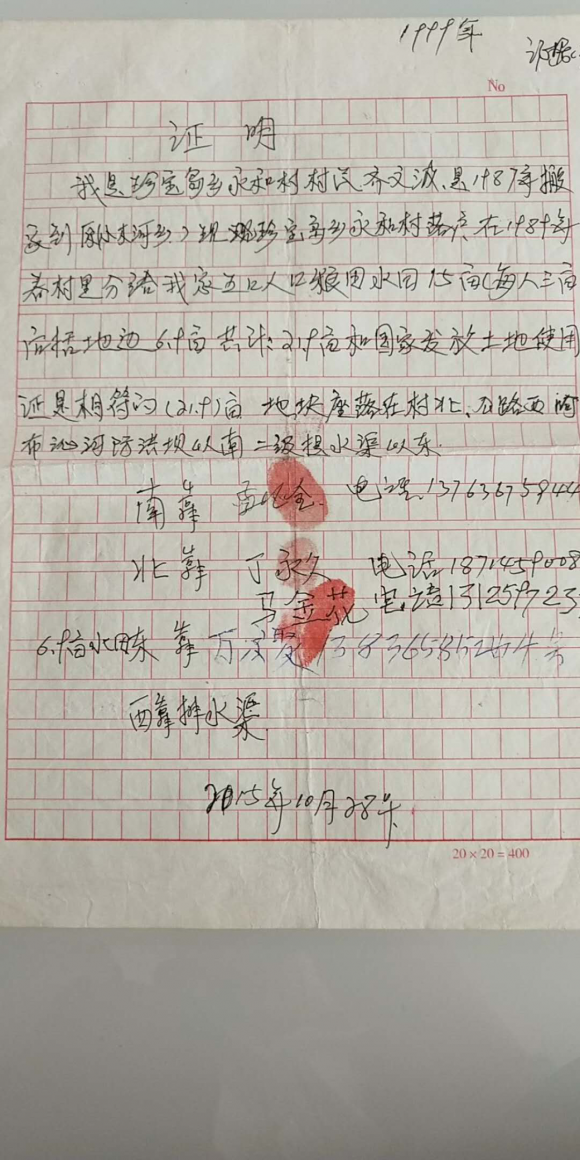 1999年
证据
No
证 明
我是珍宝岛乡永和村村民齐文波,是1987年搬
家到(原小木河乡)现 珍宝岛乡永和村落户在1989年
春村里分给我家五口人口粮田水田15亩(每人三亩
包括地边6.9亩共计:21.9亩和国家发放土地使用
证是相符的(21.9)亩 地块座落在村北、 路西
布沁河防洪坝以南二级提水渠以东.
南靠 电话.13763675944
北靠 丁永久 电话1871459008
马金花 电话131259723
6.9亩水田东靠 万
西靠排水渠
2015年10月28号
20×20=400